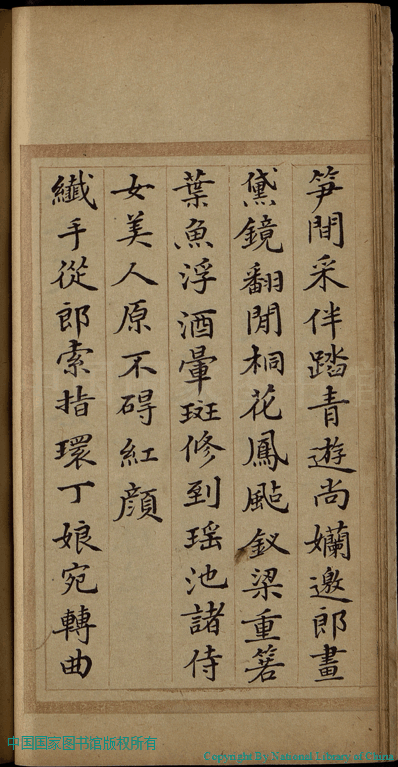 笋間采伴踏青遊尚孏邀郎畫
黛鏡翻閒桐花鳳颭釵梁重箬
葉魚浮酒暈斑修到瑶池諸侍
女美人原不碍紅顔
纖手從郎索指環丁娘宛轉曲
中国国家图书馆版权所有
Copyright By National Library of China